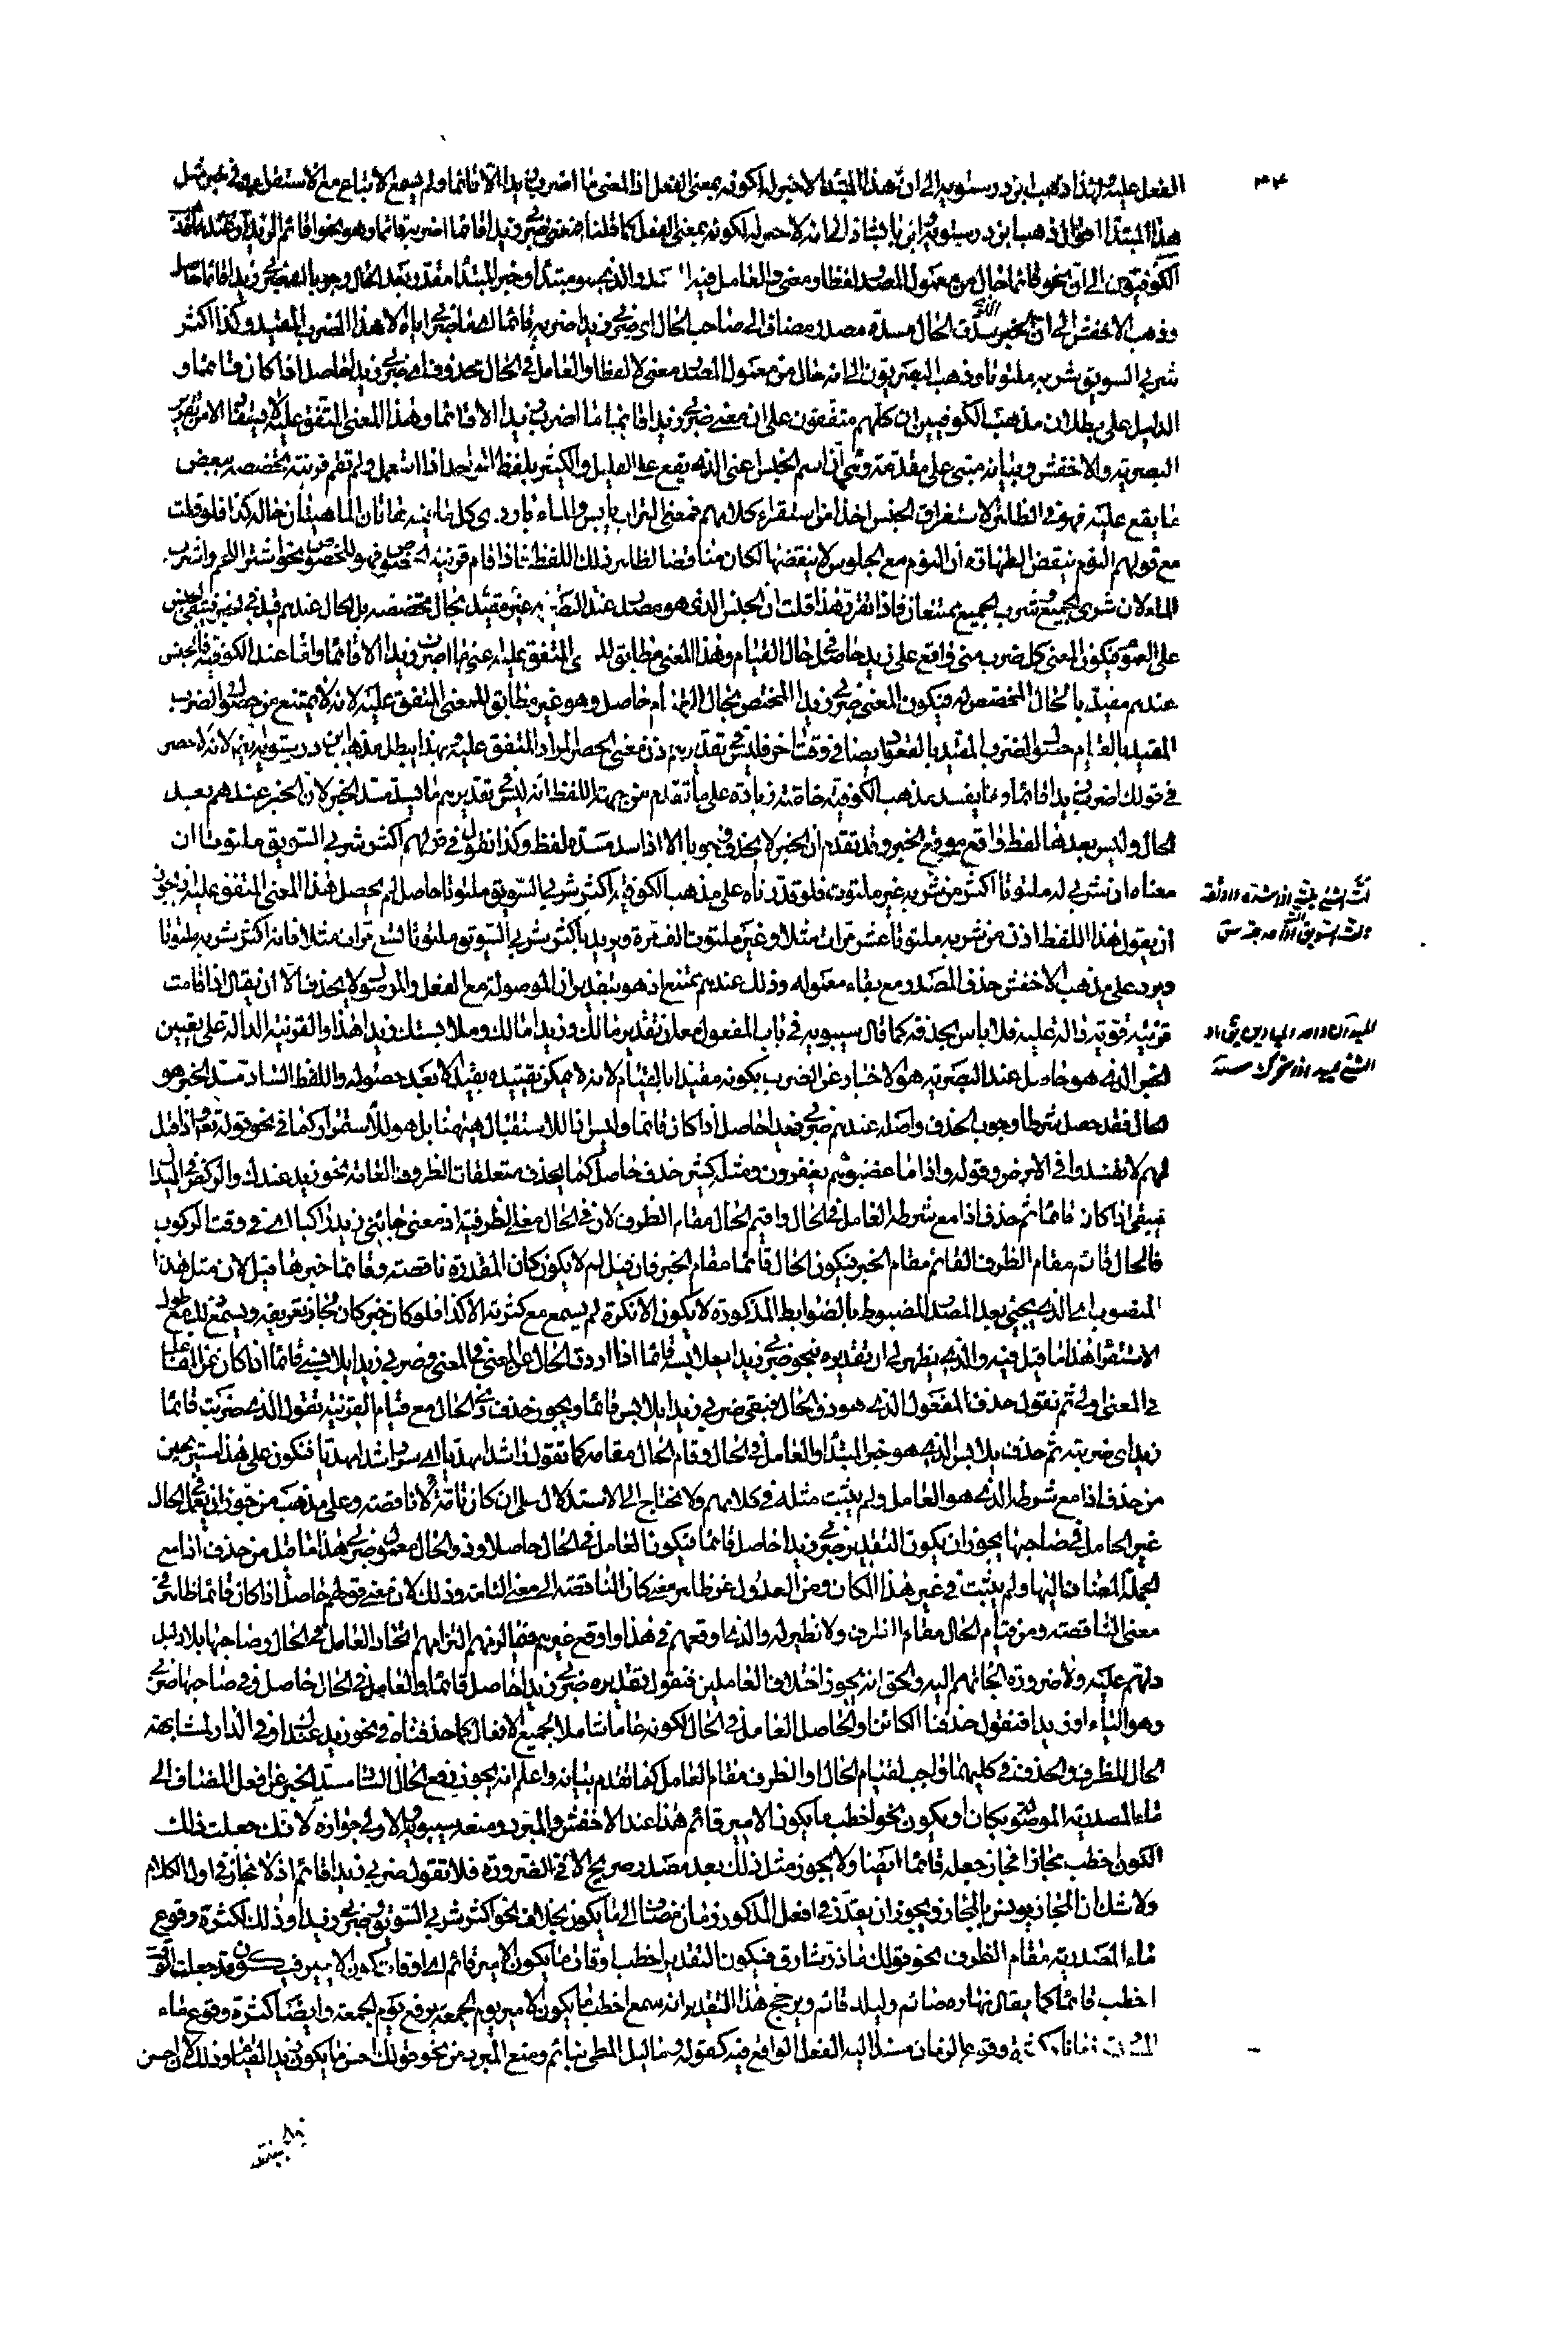 الفعل عليه ولهذا ذهب ابن درستويه الى ان هذا المبتدأ لا خبر له لكونه بمعنى الفعل اذ المعنى ما اضرب زيدا الا قائما ولم يسمع الاتباع مع الاستقراء وفي خبر مثل
هذا المبتدا اقوال ذهب ابن درستويه وابن بابشاذ الى انه لا خبر له لكونه بمعنى الفعل كما قلنا فمعنى ضربي زيدا قائما اضربه قائما وهو نحو اقائم الزيدان وعند
الكوفيون الى ان نحو قائما حال من معمول المصدر لفظا ومعنى والعامل فيه المصدر الذي هو مبتدأ وخبر المبتدا مقدر بعد الحال وجوبا اي ضربي زيدا قائما حاصل
وذهب الاخفش الى ان الخبر الذي سدت الحال مسده مصدر مضاف الى صاحب الحال اي ضربي زيدا ضربه قائما اي ما ضربي اياه الا هذا الضرب المقيد وكذا اكثر
شربي السويق شربه ملتوتا وذهب البصريون الى انه حال من معمول المصدر معنى لا لفظا والعامل في الحال محذوف اي ضربي زيدا حاصل اذا كان قائما و
الدليل على بطلان مذهب الكوفيين ان كلهم متفقون على ان معنى ضربي زيدا قائما ما اضرب زيدا الا قائما وهذا المعنى المتفق عليه لا يستفاد الا من تقدير
البصرية والاخفش وبيانه مبني على مقدمة وهي ان اسم الجنس اعني الذي يقع على القليل والكثير بلفظ الواحد اذا استعمل ولم تقم قرينة تخصصه ببعض
ما يقع عليه فهو في الظاهر لاستغراق الجنس اخذا من استقراء كلامهم فمعنى التراب يابس والماء بارد ي كل ما فيه هاتان الماهيتان حاله كذا فلو قلت
مع قولهم النوم ينقض الطهارة ان النوم مع الجلوس لا ينقضها لكان مناقضا لظاهر ذلك اللفظ فاذا قام قرينة الخصوص فهو للخصوص نحو اشتر اللحم واشرب
الماء لان شرى الجميع وشرب الجميع ممتنعان فاذا تقرر هذا قلت ان الجنس الذي هو مصدر عند البصرية غير مقيد بحال تخصصه بل الحال عندهم قيد في الخبر فيبقى الجنس
على العموم فيكون المعنى كل ضرب مني واقع على زيد حاصل في حال القيام وهذا المعنى مطابق للمعنى المتفق عليه اعني ما اضرب زيدا الا قائما واما عند الكوفية فالجنس
عندهم مقيد بالحال المخصص له فيكون المعنى ضربي زيدا المختص بحال القيام حاصل وهو غير مطابق للمعنى المتفق عليه لانه لا يمتنع من حصول الضرب
المقيد بالقيام حصول الضرب المقيد بالقعود ايضا في وقت اخر فليس في تقديرهم اذن معنى الحصر المراد المتفق عليه وبهذا يبطل مذهب ابن درستويه ايضا لانه لا حصر
في قولك اضرب زيدا قائما ومما يفسد مذهب الكوفية خاصة زيادة على ما تقدم من جهة اللفظ انه ليس في تقديرهم ما يسد مسد الخبر لان الخبر عندهم بعد
الحال وليس بعدها لفظ واقع موقع الخبر وقد تقدم ان الخبر لا يحذف وجوبا الا اذا سد مسده لفظ وكذا نقول في قولهم اكثر شربي السويق ملتوتا ان
معناه ان شربي له ملتوتا اكثر من شربه غير ملتوت فلو قدرناه على مذهب الكوفية اكثر شربي السويق ملتوتا حاصل لم يحصل هذا المعنى المتفق عليه ويجوز
ان يقول هذا اللفظ اذن من شربه ملتوتا عشر مرات مثلا وغير ملتوت الف مرة ويريد باكثر شربي السويق ملتوتا تسع مرات مثلا فانه اكثر شربه ملتوتا
ويرد على مذهب الاخفش حذف المصدر مع بقاء معموله وذلك عندهم ممتنع اذ هو بتقدير ان الموصولة مع الفعل والموصول لا يحذف الا ان يقال اذا قامت
قرينة قوية دالة عليه فلا باس بحذفه كما قال سيبويه في باب المفعول معه ان تقدير مالك وزيدا مالك وملابستك وزيدا هذا والقرينة الدالة على تعيين
الخبر الذي هو حاصل عند البصرية هو الاخبار عن الضرب بكونه مقيدا بالقيام لانه لا يمكن تقييده بقيد الا بعد حصوله واللفظ الساد مسد الخبر هو
الحال فقد حصل شرطا وجوب الحذف واصله عندهم ضربي زيدا حاصل اذا كان قائما وليس اذا للاستقبال ههنا بل هو للاستمرار كما في نحو قوله تعالى واذا قيل
لهم لا تفسدوا في الارض وقوله واذا ما غضبوا هم يغفرون ومثله كثير حذف حاصل كما يحذف متعلقات الظروف العامة نحو زيد عندك والركض في الميدان
فبقى اذا كان قائما ثم حذف اذا مع شرطه العامل في الحال واقيم الحال مقام الظرف لان في الحال معنى الظرفية اذ معنى جاءني زيد راكبا اي في وقت الركوب
فالحال قائم مقام الظرف القائم مقام الخبر فيكون الحال قائما مقام الخبر فان قيل لم لا يكون كان المقدرة ناقصة وقائما خبرها قيل لان مثل هذا
المنصوب اي الذي يجيء بعد المصدر المضبوط بالضوابط المذكورة لا يكون الا نكرة لم يسمع مع كثرته الا كذا فلو كان خبر كان لجاز تعريفه ويسمع ذلك مع طول
الاستقراء هذا ما قيل فيه والذي يظهر لي ان تقديره نحو ضربي زيدا يلابسه قائما اذا اردت الحال عن المفعول وضربي زيدا يلابسني قائما اذا كان عن الفاعل
في المعنى اولى ثم نقول حذف المفعول الذي هو ذو الحال فبقى ضربي زيدا يلابس قائما ويجوز حذف ذي الحال مع قيام القرينة تقول الذي ضربت قائما
زيد اي ضربته ثم حذف يلابس الذي هو خبر المبتدأ والعامل في الحال وقام الحال مقامه كما تقول راشدا مهديا اي سر راشدا مهديا فنكون على هذا مستريحين
من حذف اذا مع شرطه الذي هو العامل ولم يثبت مثله في كلامهم ولا نحتاج الى الاستدلال على ان كان تامة لا ناقصة وعلى مذهب من جوز ان يعمل في الحال
غير العامل في صاحبها يجوز ان يكون التقدير ضربي زيدا حاصل قائما فيكون العامل في الحال حاصلا وذو الحال معمول ضربي هذا ما قيل من حذف اذا مع
الجملة المضاف اليها ولم يثبت في غير هذا المكان ومن العدول عن ظاهر معنى كان الناقصة الى معنى التامة وذلك لان معنى قولهم حاصل اذا كان قائما ظاهر في
معنى الناقصة ومن قيام الحال مقام الظرف ولا نظير له والذي اوقعهم في هذا واوقع غيرهم فيما الزمهم التزامهم اتحاد العامل في الحال وصاحبها بلا دليل
دلهم عليه ولا ضرورة الجأتهم اليه والحق انه يجوز اختلاف العاملين فنقول تقديره ضربي زيدا حاصل قائما والعامل في الحال حاصل وفي صاحبها ضربي
وهو الياء او زيدا فنقول حذفنا الكائن او الحاصل العامل في الحال لكونه عاما شاملا لجميع الافعال كما حذفناه في نحو زيد عندك او في الدار لمشابهته
الحال للظرف والحذف في كليهما واجب لقيام الحال او الظرف مقام العامل كما تقدم بيانه واعلم انه يجوز رفع الحال الساد مسد الخبر عن افعل المضاف الى
ماء المصدرية الموصولة بكان او يكون نحو اخطب ما يكون الامير قائم هذا عند الاخفش والمبرد ومنعه سيبويه والاولى جوازه لانك جعلت ذلك
الكون اخطب مجازا فجاز جعله قائما ايضا ولا يجوز مثل ذلك بعد مصدر صريح الا في الضرورة فلا تقول ضربي زيدا قائم اذ لا مجاز في اول الكلام
ولا شك ان المجاز يونس بالمجاز ويجوز ان يقدر في افعل المذكور زمان مضاف الى ما يكون بخلاف نحو اكثر شربي السويق وضربي زيدا وذلك لكثرة وقوع
ماء المصدرية مقام الظرف نحو قولك ما ذر شارق فيكون التقدير اخطب اوقات ما يكون الامير قائم اي اوقات كون الامير فيكون قد جعلت الوقت
اخطب قائما كما يقال نهاره صائم وليله قائم ويرجح هذا التقدير انه سمع اخطب ما يكون الامير يوم الجمعة برفع يوم الجمعة وايضا كثرة وقوع ماء
وقوع الزمان مسندا اليه الفعل الواقع فيه كقوله وما ليل المطي بنائم ومنع المبرد من نحو قولك احسن ما يكون زيد القيام وذلك لان احسن